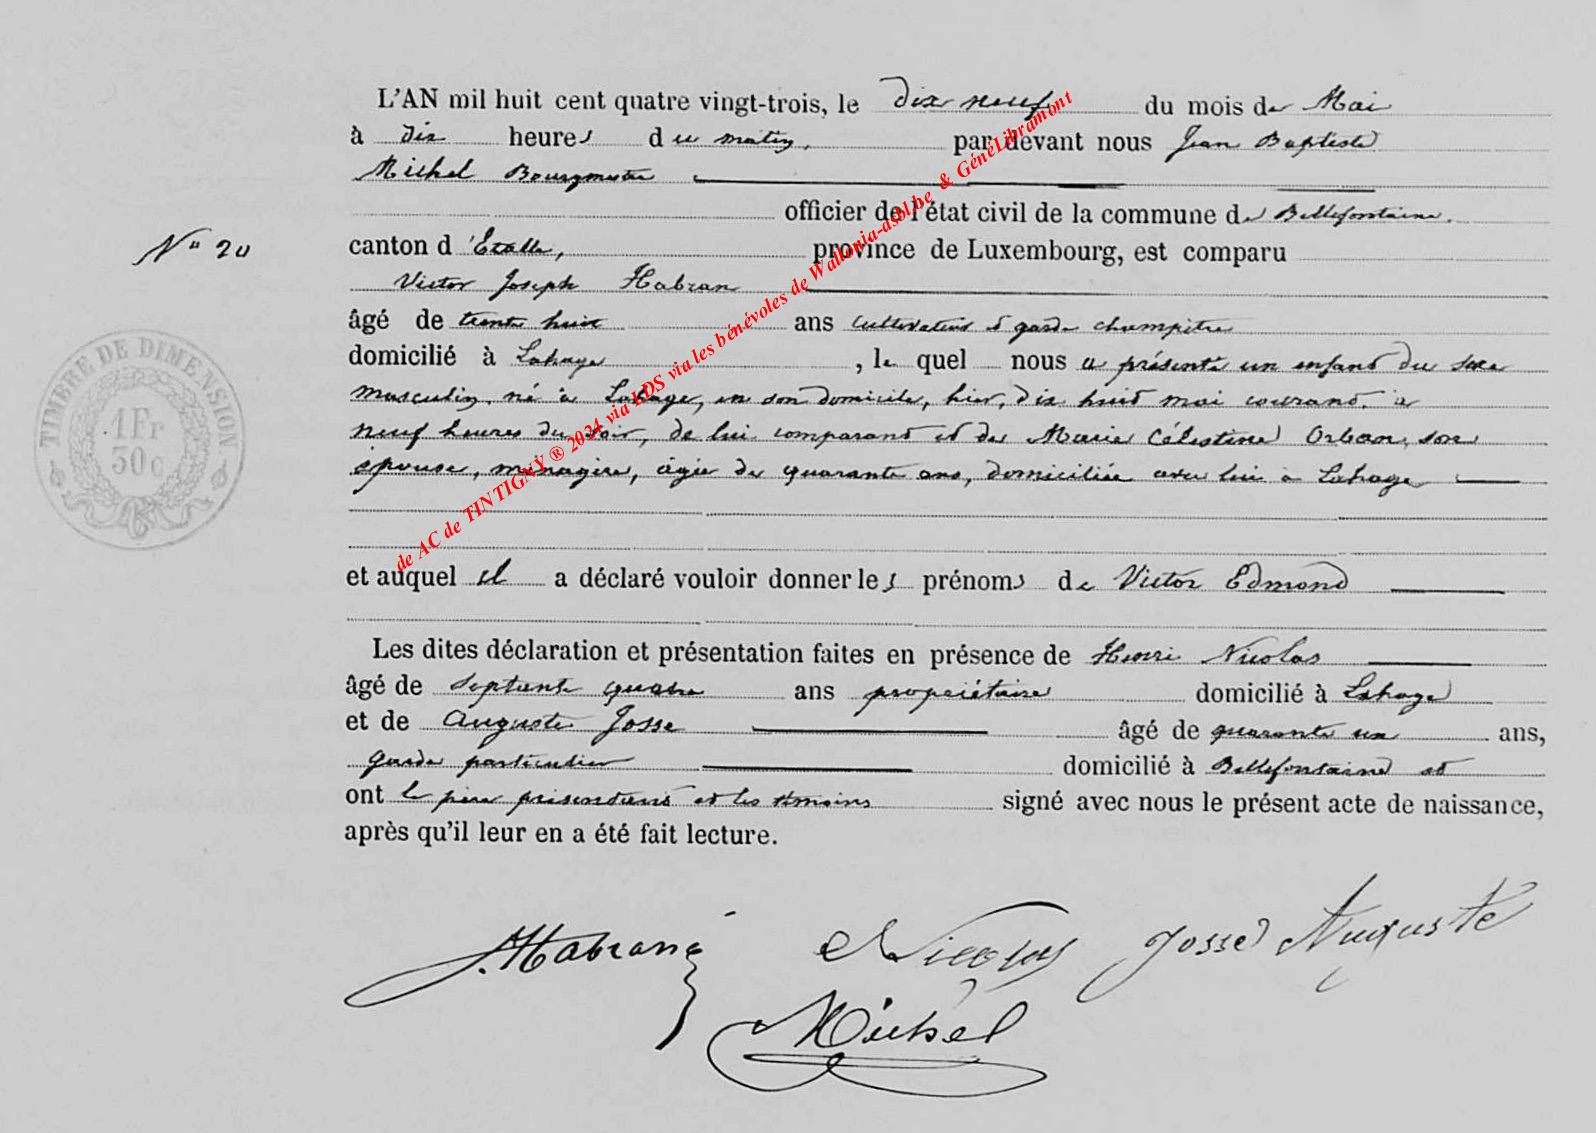 L'AN mil huit cent quatre vingt-trois, le dix neuf du mois de Mai
à dix heures du matin, par devant nous Jean Baptiste
Michel Bourgmestre
officier de l'état civil de la commune de Bellefontaine.
N° 20
canton d'Etalle, province de Luxembourg, est comparu
Victor Joseph Habran
âgé de trente huit ans cultivateur & garde champêtre
domicilié à Lahage, le quel nous a présenté un enfant du sexe
masculin, né à Lahage, en son domicile, hier, dix huit mai courant, à
neuf heures du soir, de lui comparant et de Marie Célestine Orban, son
épouse, ménagère, âgée de quarante ans, domiciliée avec lui à Lahage
et auquel il a déclaré vouloir donner les prénoms de Victor Edmond
Les dites déclaration et présentation faites en présence de Henri Nicolas
âgé de septante quatre ans propriétaire domicilié à Lahage
et de Auguste Josse âgé de quarante un ans,
garde particulier domicilié à Bellefontaine et
ont le père présentant et les témoins signé avec nous le présent acte de naissance,
après qu'il leur en a été fait lecture.
J. Habran
Nicolas
Josse Auguste
Michel
TIMBRE DE DIMENSION
1 Fr
30 c
de AC de TINTIGNY ® 2024 via LDS via les bénévoles de Wallonia-asbl.be & GénéLibramont